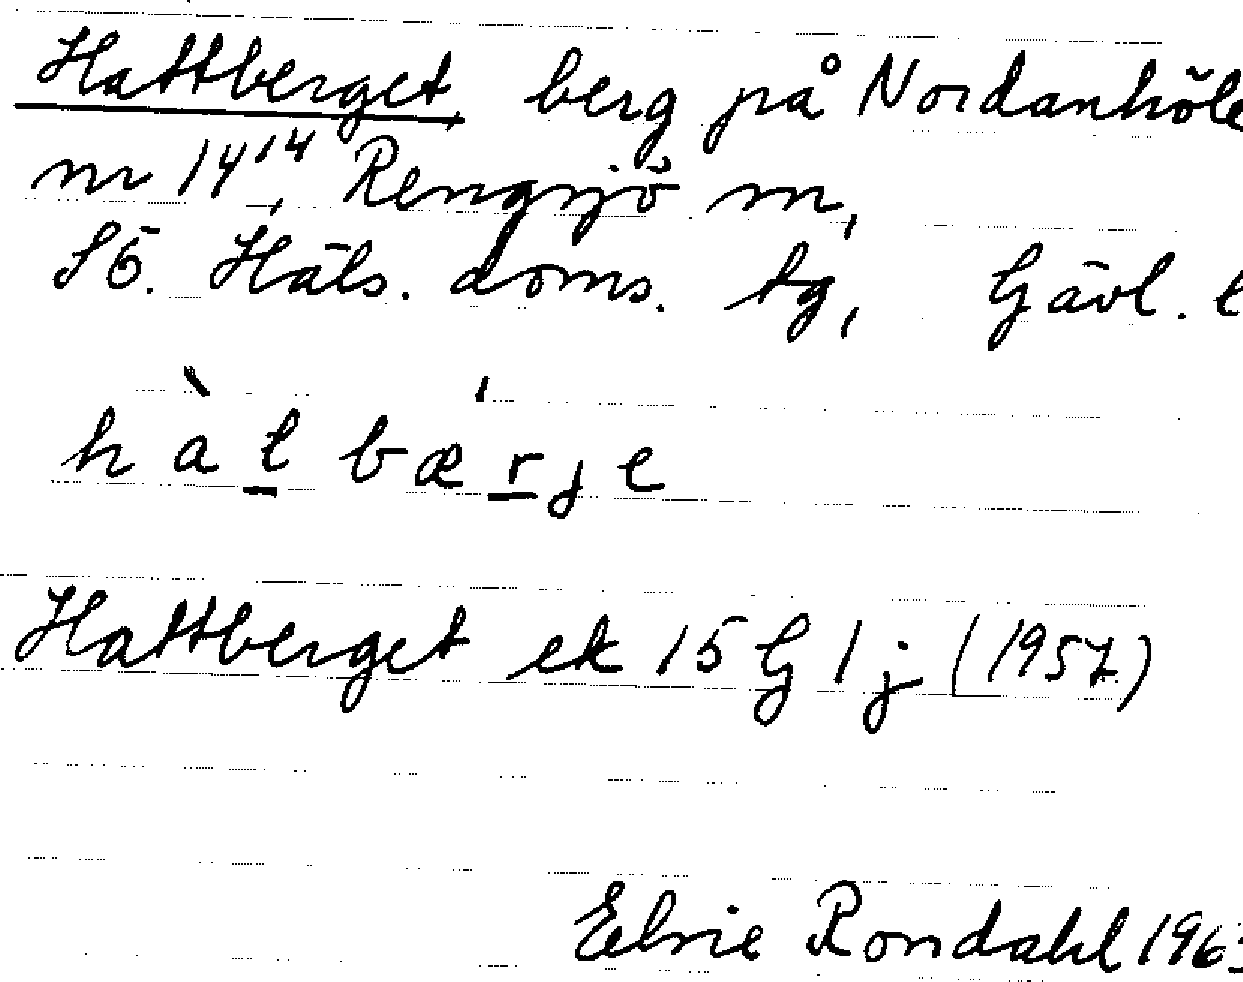 Hattberget, berg på Nordanhöle
nr 14¹⁴, Rengsjö sn,
Sö. Häls. doms. tg, Gävl. l
hàt bæ´rje
Hattberget ek 15 G 1 j (1957)
Elvie Rondahl 1963